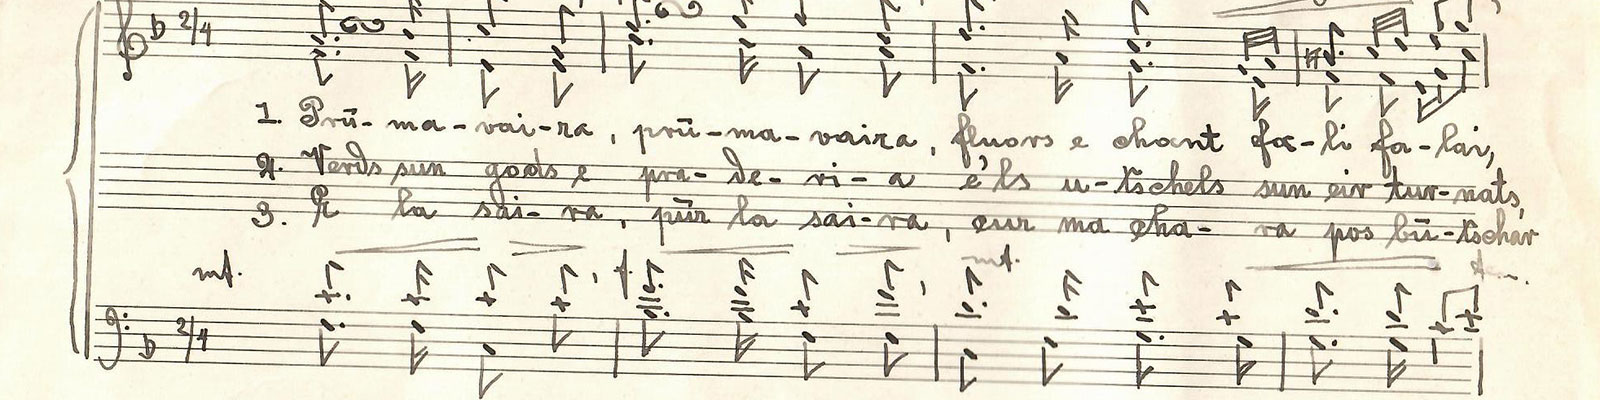 2/4
1. Prü-ma-vai-ra, prü-ma-vaira, fluors e chant fa-li fa-lai,
2. Verds sun gods e pra-de-ri-a e'ls u-tschels sun eir tur-nats,
3. E la sai-ra, pür la sai-ra, eur ma cha-ra pos bü-tschar
mf. f. mf.
2/4